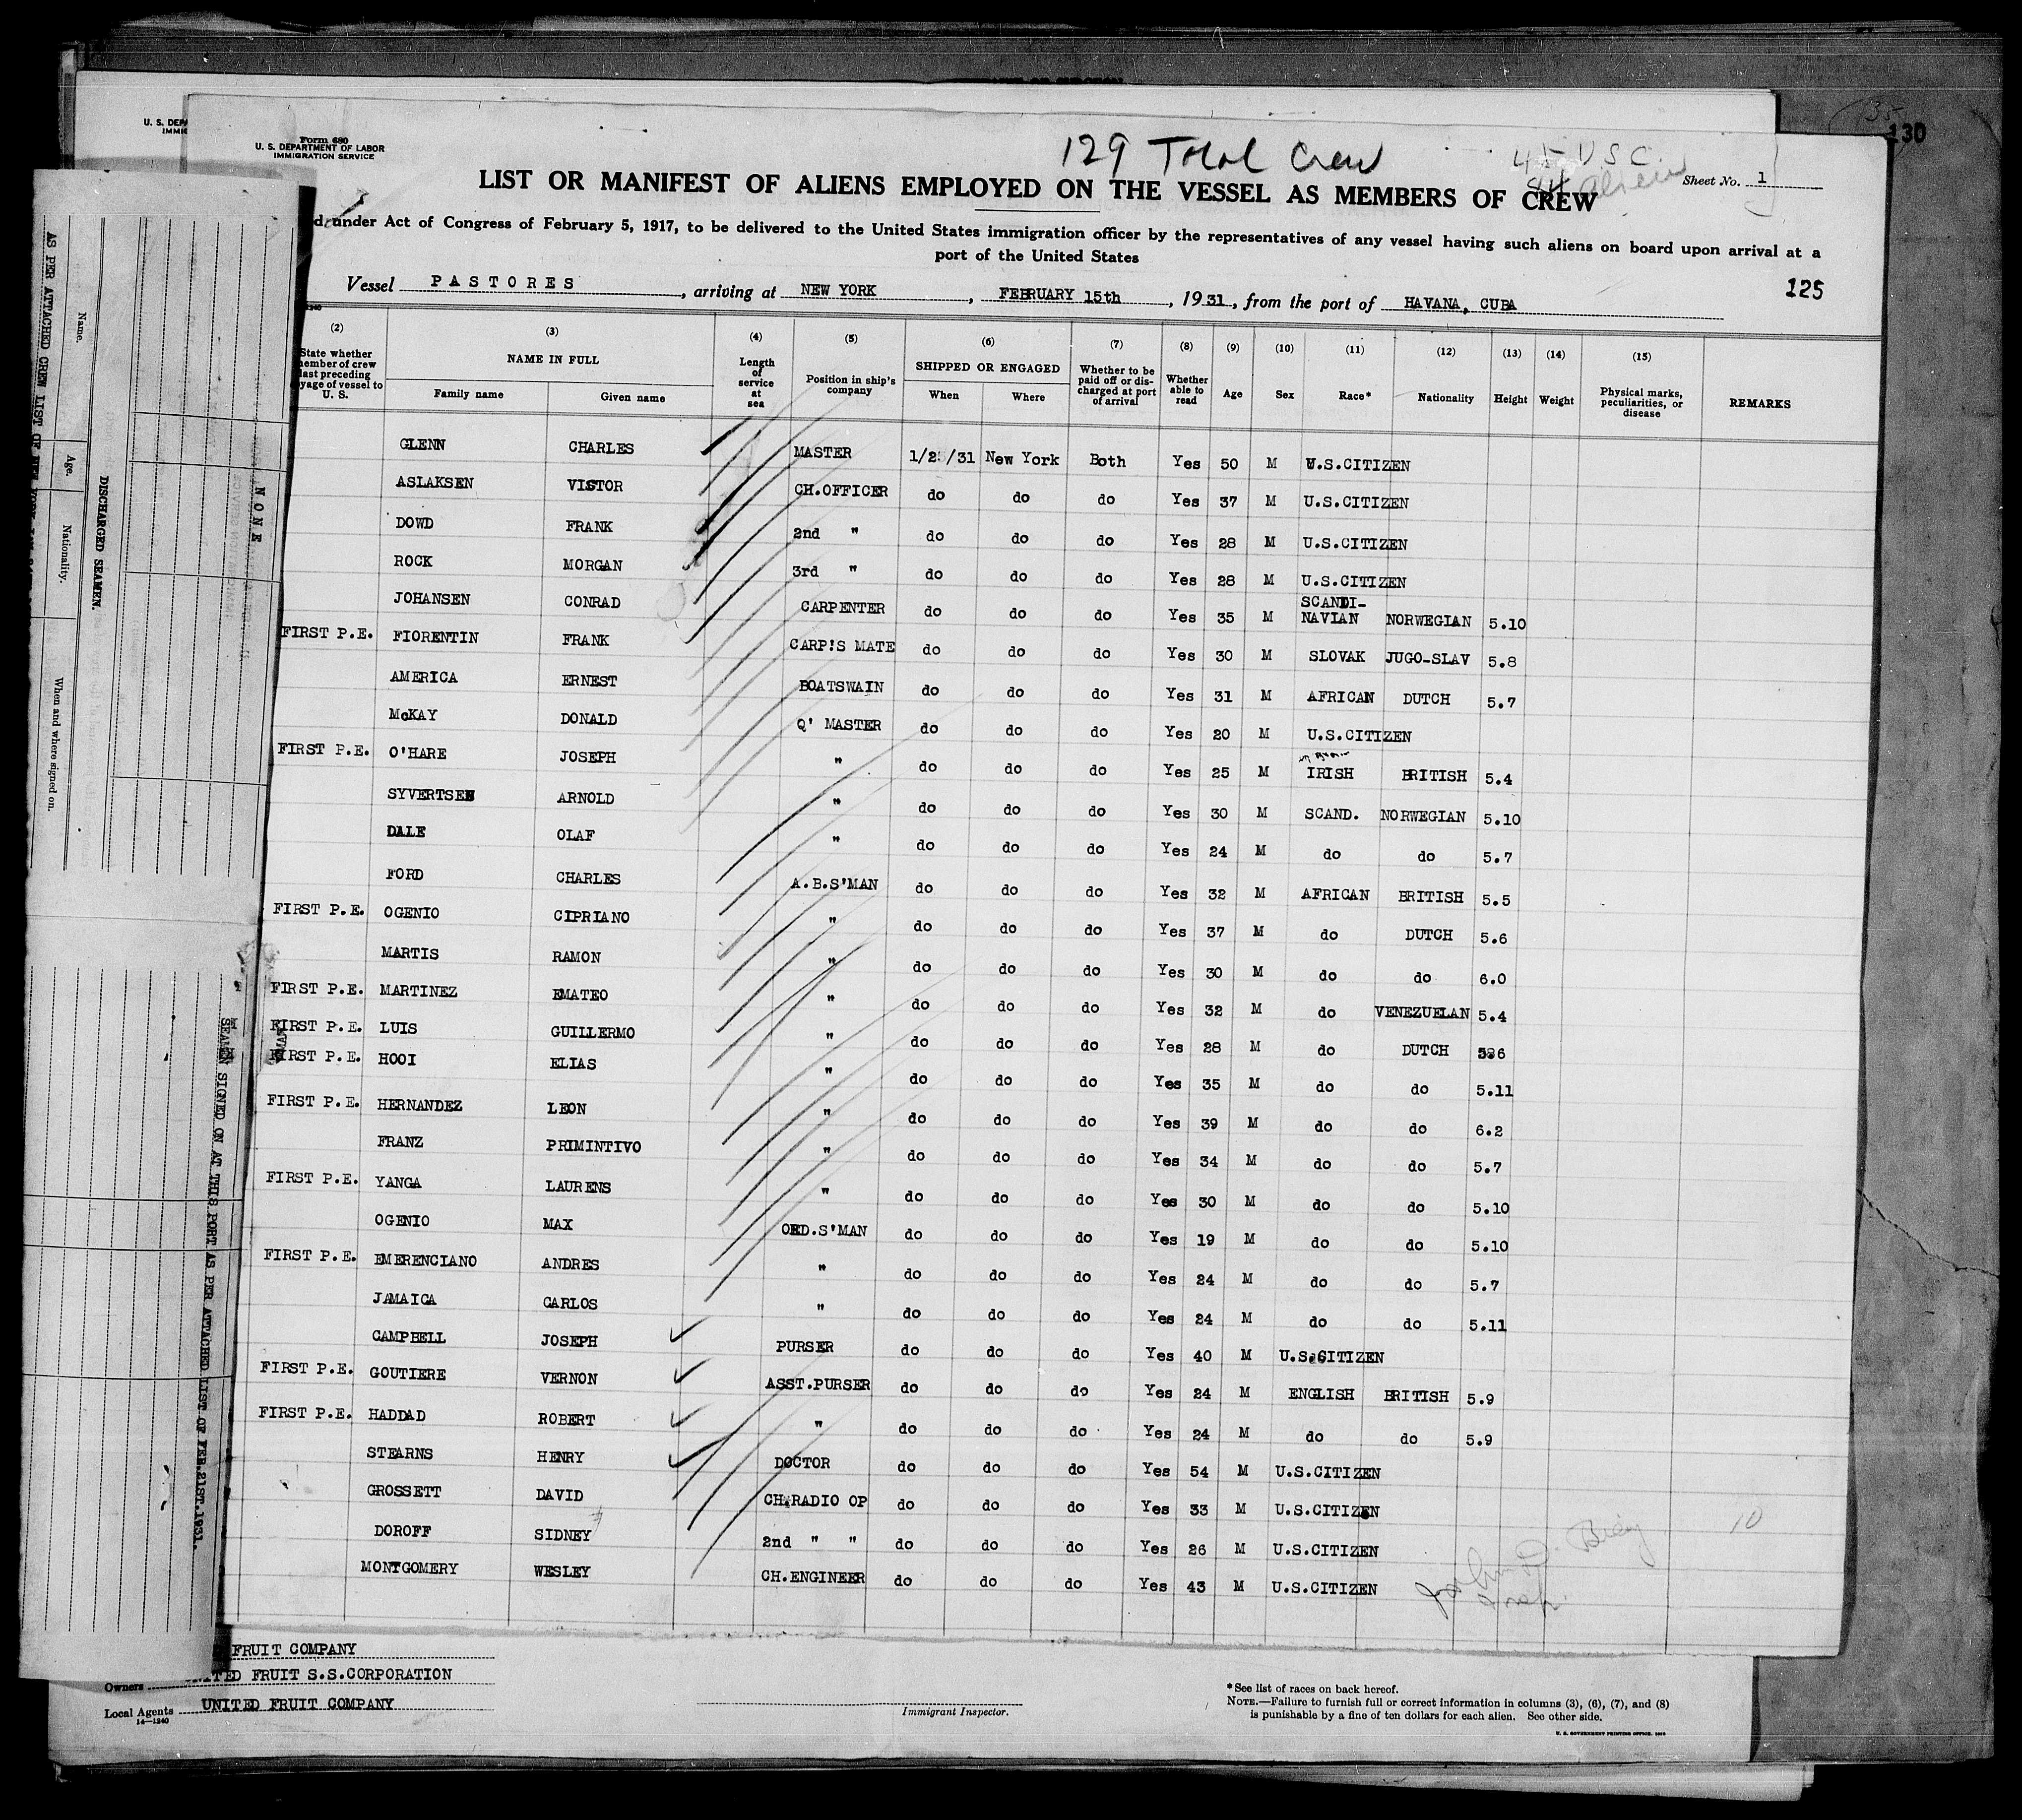 130
U. S. DEPA
IMMIG
Form 680
U. S. DEPARTMENT OF LABOR
IMMIGRATION SERVICE
129 Total Crew
45 USC
84 aliens
Sheet No. 1
LIST OR MANIFEST OF ALIENS EMPLOYED ON THE VESSEL AS MEMBERS OF CREW
d under Act of Congress of February 5, 1917, to be delivered to the United States immigration officer by the representatives of any vessel having such aliens on board upon arrival at a
port of the United States
Vessel PASTORES, arriving at NEW YORK, FEBRUARY 15th, 1931, from the port of HAVANA, CUBA
125
(2) (3) (4) (5) (6) (7) (8) (9) (10) (11) (12) (13) (14) (15)
State whether member of crew last preceding voyage of vessel to U. S. NAME IN FULL Family name Given name Length of service at sea Position in ship's company SHIPPED OR ENGAGED When Where Whether to be paid off or discharged at port of arrival Whether able to read Age Sex Race* Nationality Height Weight Physical marks, peculiarities, or disease REMARKS
GLENN CHARLES MASTER 1/2 /31 New York Both Yes 50 M U.S.CITIZEN
ASLAKSEN VICTOR CH.OFFICER do do do Yes 37 M U.S.CITIZEN
DOWD FRANK 2nd " do do do Yes 28 M U.S.CITIZEN
ROCK MORGAN 3rd " do do do Yes 28 M U.S.CITIZEN
JOHANSEN CONRAD CARPENTER do do do Yes 35 M SCANDI-NAVIAN NORWEGIAN 5.10
FIRST P.E. FIORENTIN FRANK CARP'S MATE do do do Yes 30 M SLOVAK JUGO-SLAV 5.8
AMERICA ERNEST BOATSWAIN do do do Yes 31 M AFRICAN DUTCH 5.7
McKAY DONALD Q' MASTER do do do Yes 20 M U.S.CITIZEN
FIRST P.E. O'HARE JOSEPH " do do do Yes 25 M IRISH BRITISH 5.4
SYVERTSEN ARNOLD " do do do Yes 30 M SCAND. NORWEGIAN 5.10
DALE OLAF " do do do Yes 24 M do do 5.7
FORD CHARLES A.B.S'MAN do do do Yes 32 M AFRICAN BRITISH 5.5
FIRST P.E. OGENIO CIPRIANO " do do do Yes 37 M do DUTCH 5.6
MARTIS RAMON " do do do Yes 30 M do do 6.0
FIRST P.E. MARTINEZ EMATEO " do do do Yes 32 M do VENEZUELAN 5.4
FIRST P.E. LUIS GUILLERMO " do do do Yes 28 M do DUTCH 5.6
FIRST P.E. HOOI ELIAS " do do do Yes 35 M do do 5.11
FIRST P.E. HERNANDEZ LEON " do do do Yes 39 M do do 6.2
FRANZ PRIMINTIVO " do do do Yes 34 M do do 5.7
FIRST P.E. YANGA LAURENS " do do do Yes 30 M do do 5.10
OGENIO MAX ORD.S'MAN do do do Yes 19 M do do 5.10
FIRST P.E. EMERENCIANO ANDRES " do do do Yes 24 M do do 5.7
JAMAICA CARLOS " do do do Yes 24 M do do 5.11
CAMPBELL JOSEPH PURSER do do do Yes 40 M U.S.CITIZEN
FIRST P.E. GOUTIERE VERNON ASST.PURSER do do do Yes 24 M ENGLISH BRITISH 5.9
FIRST P.E. HADDAD ROBERT " do do do Yes 24 M do do 5.9
STEARNS HENRY DOCTOR do do do Yes 54 M U.S.CITIZEN
GROSSETT DAVID CH.RADIO OP do do do Yes 33 M U.S.CITIZEN
DOROFF SIDNEY 2nd " " do do do Yes 26 M U.S.CITIZEN
MONTGOMERY WESLEY CH.ENGINEER do do do Yes 43 M U.S.CITIZEN
10
FRUIT COMPANY
Owners UNITED FRUIT S.S.CORPORATION
Local Agents UNITED FRUIT COMPANY
14—1240
Immigrant Inspector.
*See list of races on back hereof.
NOTE.—Failure to furnish full or correct information in columns (3), (6), (7), and (8)
is punishable by a fine of ten dollars for each alien. See other side.
U. S. GOVERNMENT PRINTING OFFICE
AS PER ATTACHED CREW LIST OF NEW YORK
Name.
Age.
Nationality.
When and where signed on.
DISCHARGED SEAMEN.
NONE
SEAMEN SIGNED ON AT THIS PORT AS PER ATTACHED LIST OF FEB.21ST.1931.